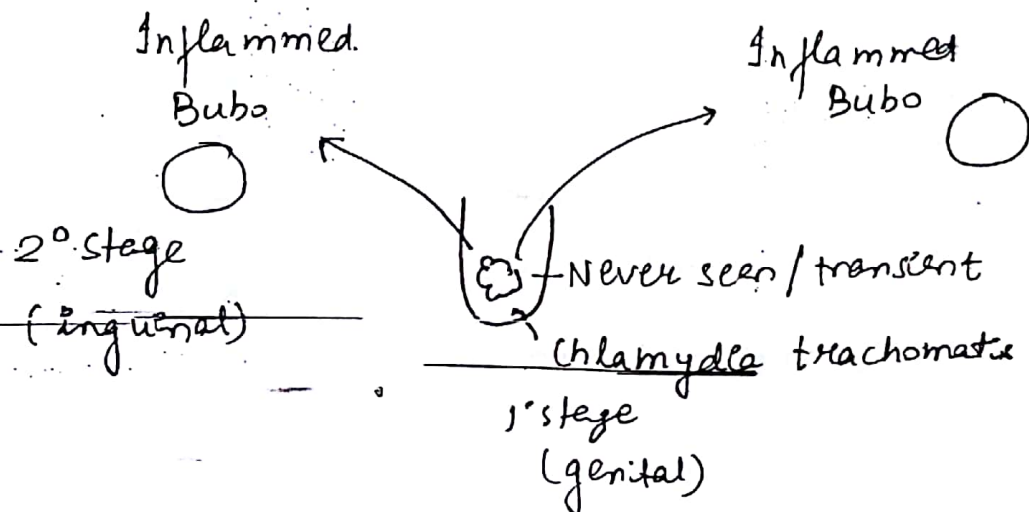 Inflammed.
Bubo
Inflammed
Bubo
2° stage
(inguinal)
Never seen / transient
Chlamydia trachomatis
1° stage
(genital)